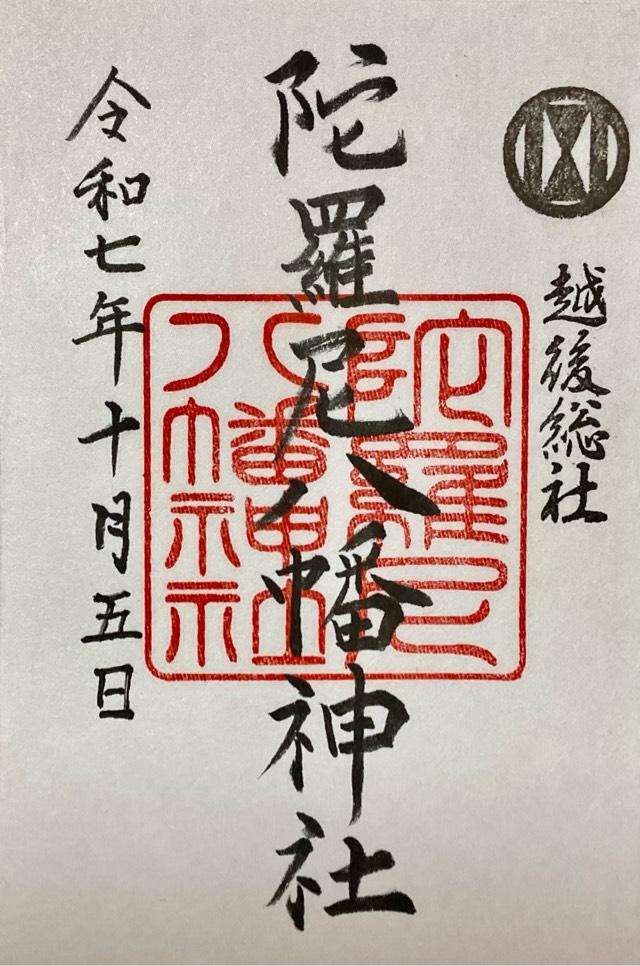 越後総社
陀羅尼八幡神社
陀羅尼八幡神社
令和七年十月五日